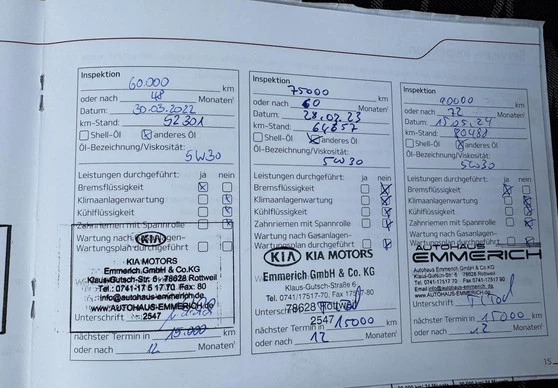 Inspektion
60.000 km
oder nach 48 Monaten
Datum: 30.03.2022
km-Stand: 52301
Shell-Öl anderes Öl
Öl-Bezeichnung/Viskosität:
5W30
Leistungen durchgeführt: ja nein
Bremsflüssigkeit
Klimaanlagenwartung
Kühlflüssigkeit
Zahnriemen mit Spannrolle
Wartung nach Gasanlagen-
Wartungsplan durchgeführt
KIA
KIA MOTORS
Emmerich GmbH & Co.KG
Klaus-Gutsch-Str. 6 · 78628 Rottweil
Tel.: 0741-17 5 17 70 Fax: 80
info@autohaus-emmerich.de
www.AUTOHAUS-EMMERICH.de
Unterschrift
2547
nächster Termin in 15.000 km
oder nach 12 Monaten
Inspektion
75000 km
oder nach 60 Monaten
Datum: 28.03.23
km-Stand: 64657
Shell-Öl anderes Öl
Öl-Bezeichnung/Viskosität:
5W30
Leistungen durchgeführt: ja nein
Bremsflüssigkeit
Klimaanlagenwartung
Kühlflüssigkeit
Zahnriemen mit Spannrolle
Wartung nach Gasanlagen-
Wartungsplan durchgeführt
KIA KIA MOTORS
Emmerich GmbH & Co. KG
Klaus-Gutsch-Straße 6
Tel. 0741/17517-70, Fax 17517-80
78628 Rottweil
2547
nächster Termin in 15000 km
oder nach 12 Monaten
Inspektion
90000 km
oder nach 72 Monaten
Datum: 15.05.24
km-Stand: 80488
Shell-Öl anderes Öl
Öl-Bezeichnung/Viskosität:
5W30
Leistungen durchgeführt: ja nein
Bremsflüssigkeit
Klimaanlagenwartung
Kühlflüssigkeit
Zahnriemen mit Spannrolle
Wartung nach Gasanlagen-
Wartungsplan durchgeführt
AUTOHAUS
EMMERICH
Autohaus Emmerich GmbH & Co. KG
Klaus-Gutsch-Str. 6 78628 Rottweil
Tel.: 0741-17517 70
info@autohaus-emmerich.de
www.AUTOHAUS-EMMERICH.de
Unterschrift
nächster Termin in 15000 km
oder nach 12 Monaten
15